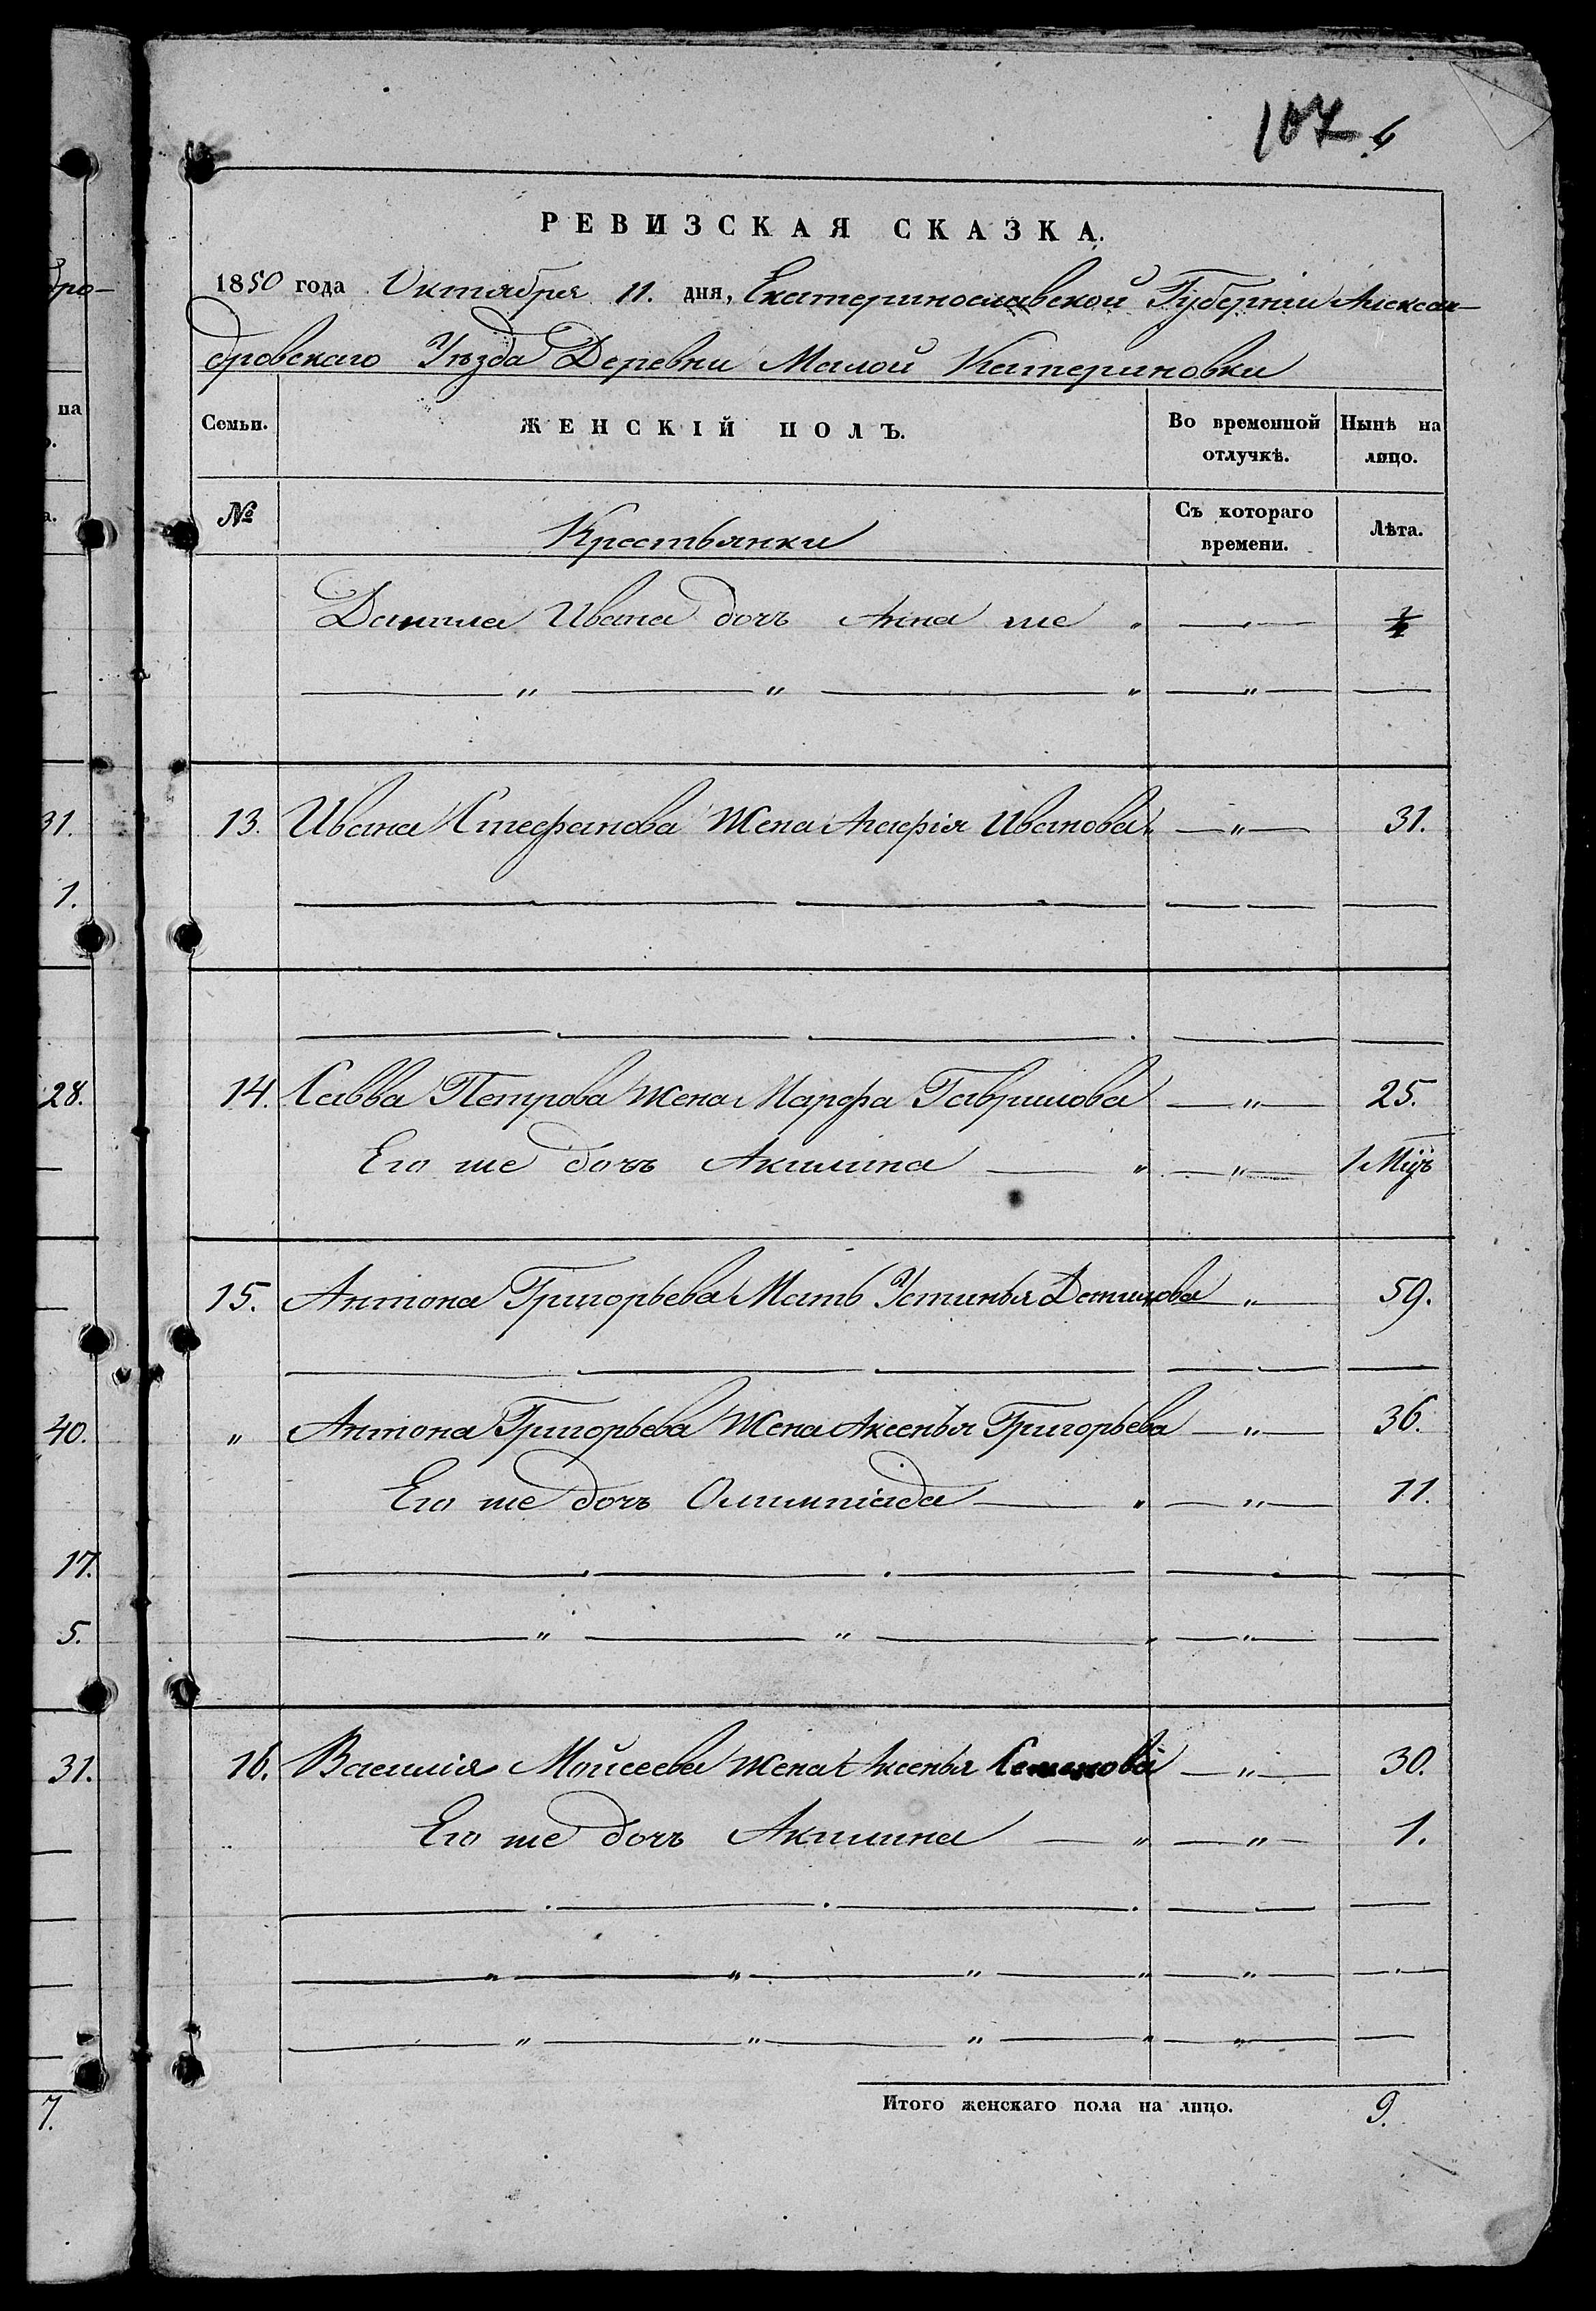 107 6
РЕВИЗСКАЯ СКАЗКА.
1850 года Октября 11. дня, Екатеринославской Губерніи Алексан-
дровскаго Уѣзда Деревни Малой Катериновки
Семьи. ЖЕНСКІЙ ПОЛЪ. Во временной отлучкѣ. Нынѣ на лицо.
№ Крестьянки Съ котораго времени. Лѣта.
Данила Ивана дочь Анна " — " —
— " — " — " — " — —
13. Ивана Стефанова Жена Агафія Иванова — " — 31.
14. Савва Петрова Жена Марфа Гаврилова — " — 25.
Его же дочь Акилина — " — " — 1 Мцъ
15. Антона Григорьева Мать Устинья Данилова — " — 59.
" Антона Григорьева Жена Аксенья Григорьева — " — 36.
Его же дочь Олимпіада — " — " — 11.
— " — " — — " — —
16. Василія Мойсеева Жена Аксенья Семенова — " — 30.
Его же дочь Акилина — " — " — 1.
— " — " — " — " — " — —
— " — " — " — " — " — —
Итого женскаго пола на лицо. 9.
на
31.
1.
28.
40.
17.
5.
31.
7.